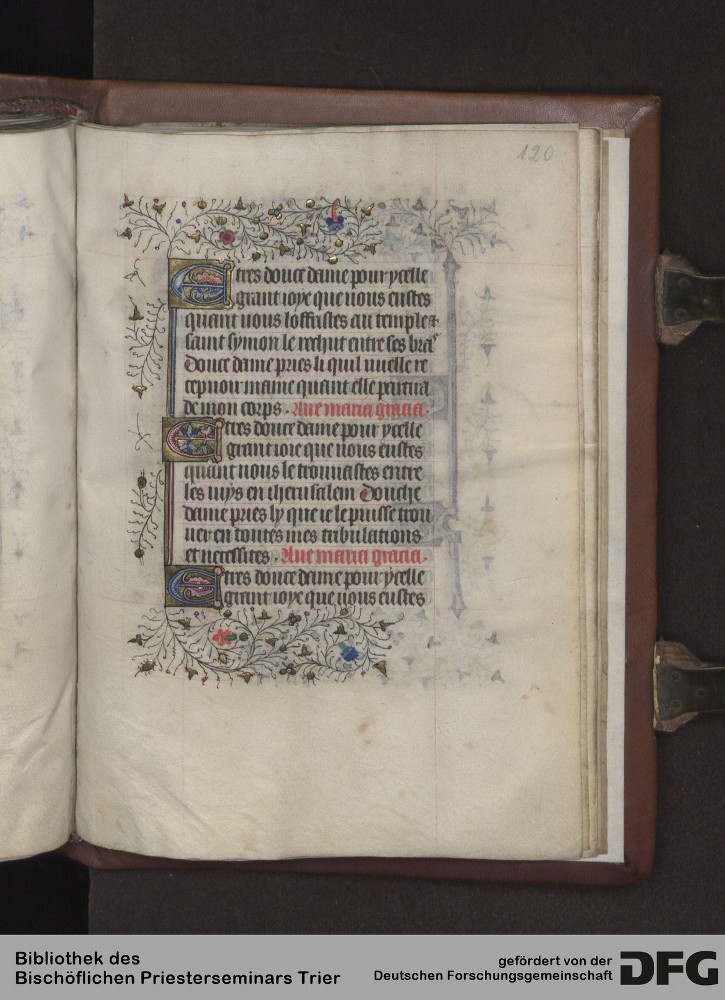 120
E tres douce dame pour ycelle
grant ioye que uous eustes
quant uous loffristes au temple &
saint symon le rechut entre ses bra
Douce dame pries li quil uuelle re
cepuoir mame quant elle partira
de mon corps . Aue maria gracia.
E tres douce dame pour ycelle
grant ioie que uous eustes
quant uous le trouuastes entre
les iuys en iherusalem Douche
dame pries ly que ie le puisse trou
uer en toutes mes tribulations
et necessites . Aue maria gracia.
E tres douce dame pour ycelle
grant ioye que uous eustes
Bibliothek des
Bischöflichen Priesterseminars Trier
gefördert von der
Deutschen Forschungsgemeinschaft
DFG